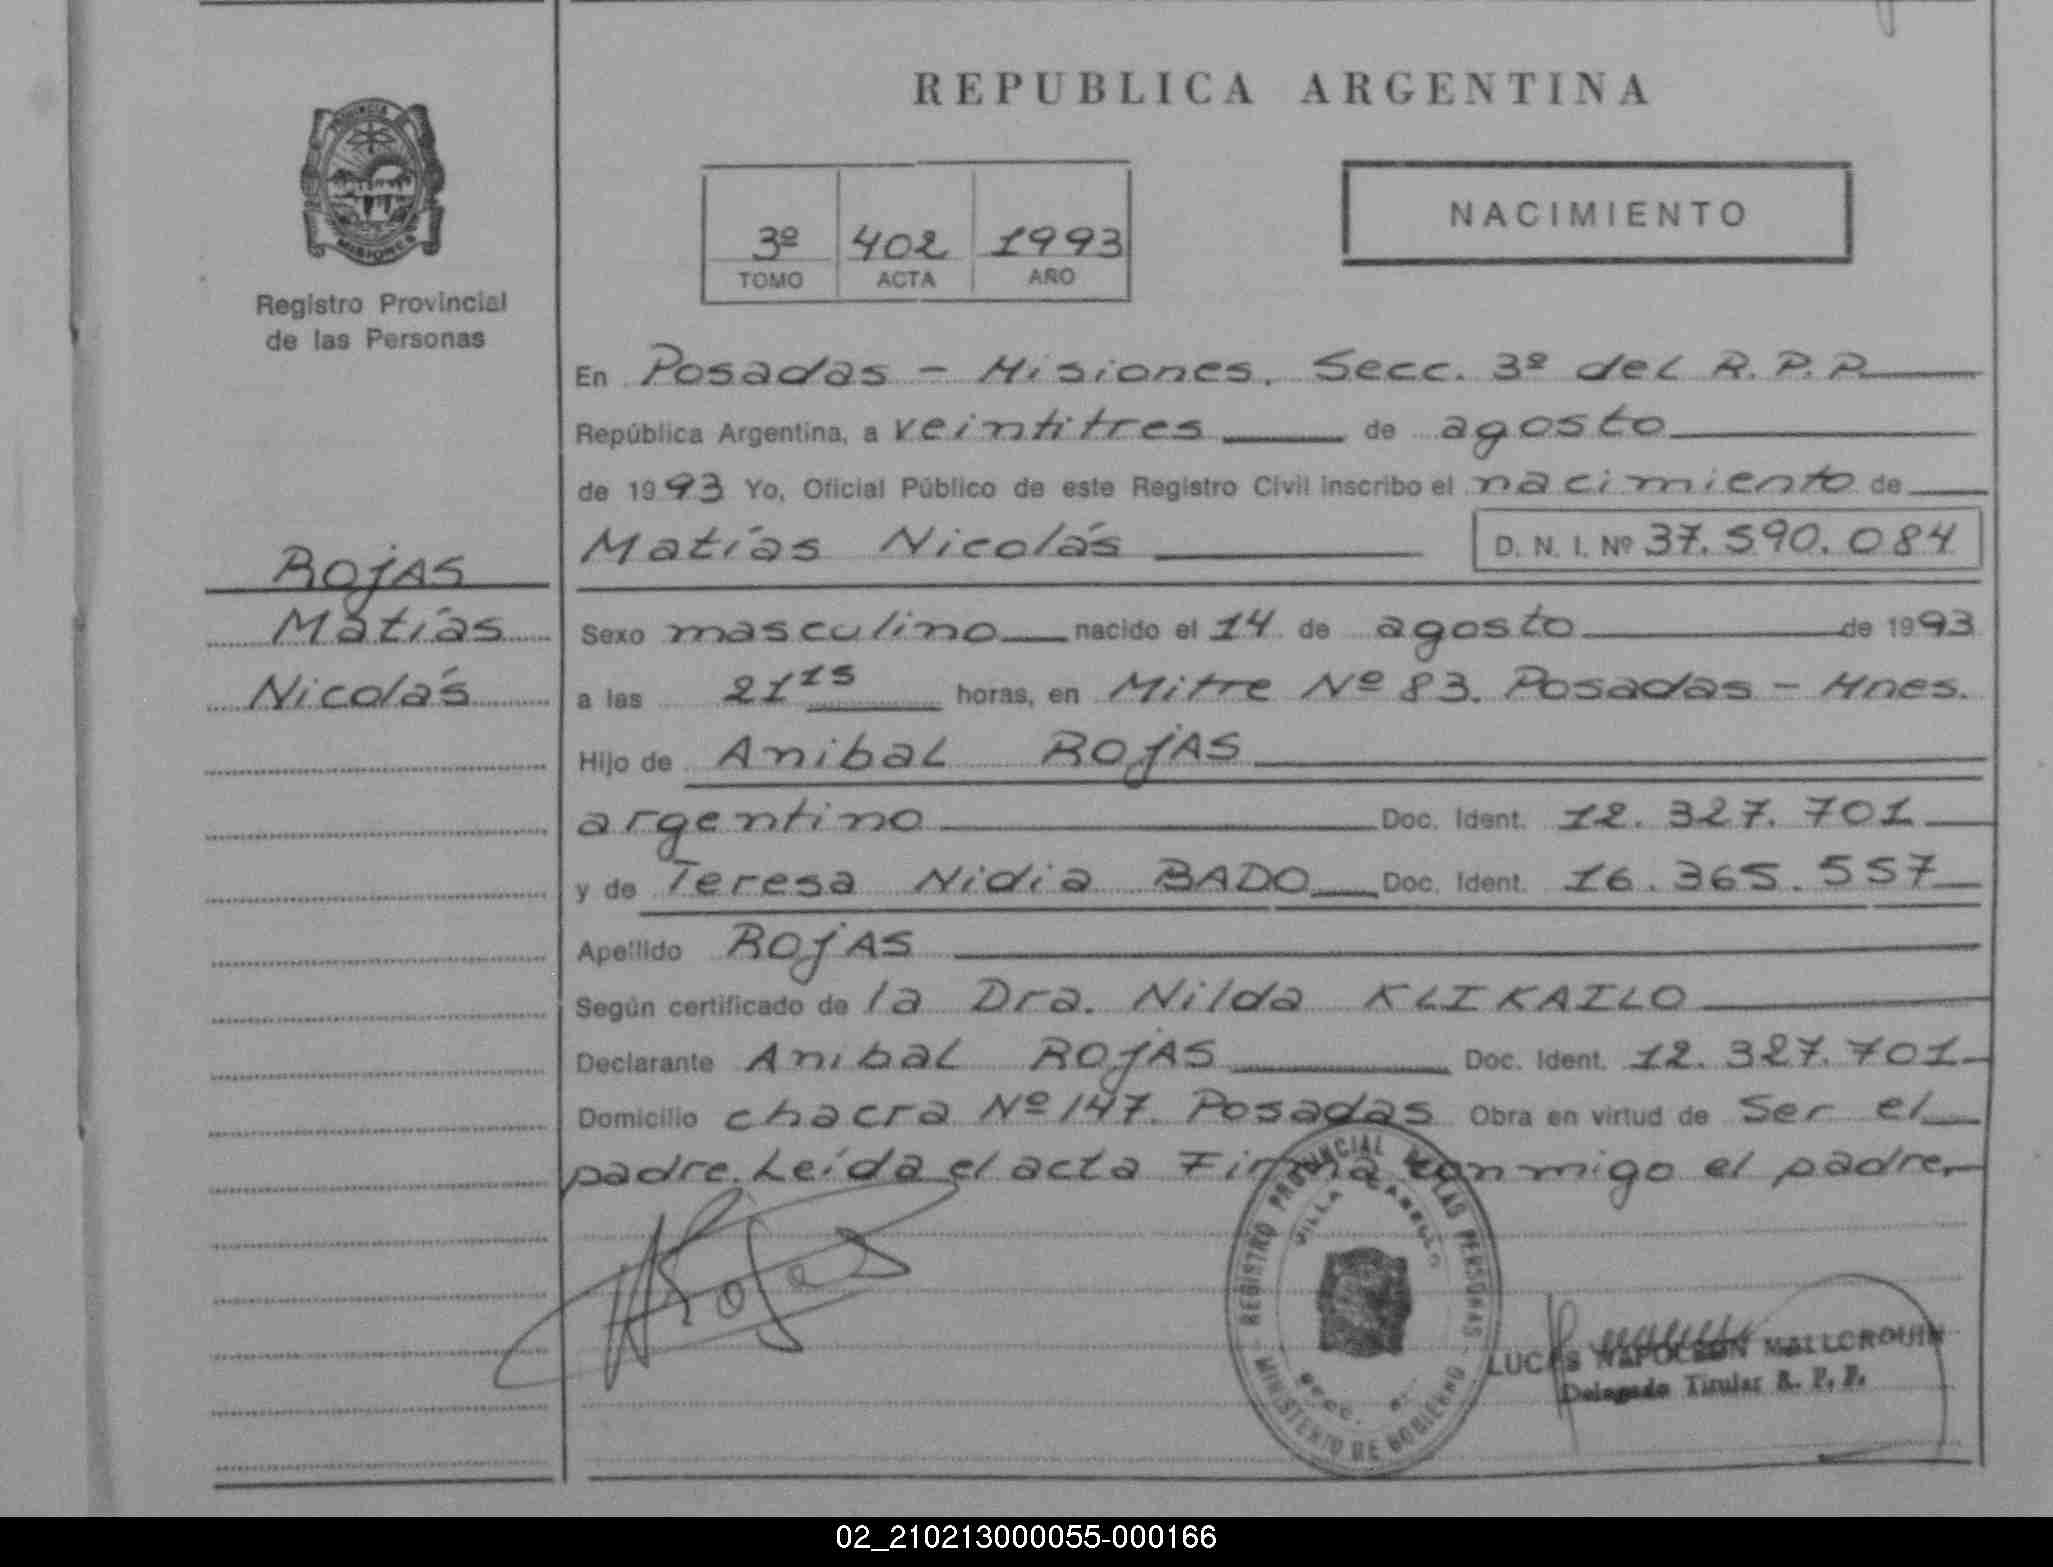 REPUBLICA ARGENTINA
PROVINCIA DE
MISIONES
Registro Provincial
de las Personas
3º 402 1993
TOMO ACTA AÑO
NACIMIENTO
En Posadas - Misiones. Secc. 3º del R.P.P.
República Argentina, a veintitres de agosto
de 1993 Yo, Oficial Público de este Registro Civil inscribo el nacimiento de
Matías Nicolás D. N. I. Nº 37.590.084
ROJAS
Matías
Nicolás
Sexo masculino nacido el 14 de agosto de 1993
a las 21 15 horas, en Mitre Nº 83. Posadas - Mnes.
Hijo de Anibal ROJAS
argentino Doc. Ident. 12.327.701
y de Teresa Nidia BADO Doc. Ident. 16.365.557
Apellido ROJAS
Según certificado de la Dra. Nilda KLIKAILO
Declarante Anibal ROJAS Doc. Ident. 12.327.701
Domicilio chacra Nº 147. Posadas Obra en virtud de Ser el
padre. Leída el acta Firma conmigo el padre.
REGISTRO PROVINCIAL DE LAS PERSONAS
VILLA CABELLO
SECC.
MINISTERIO DE GOBIERNO
LUCAS NAPOLEON MALLORQUIN
Delegado Titular R. P. P.
02_210213000055-000166